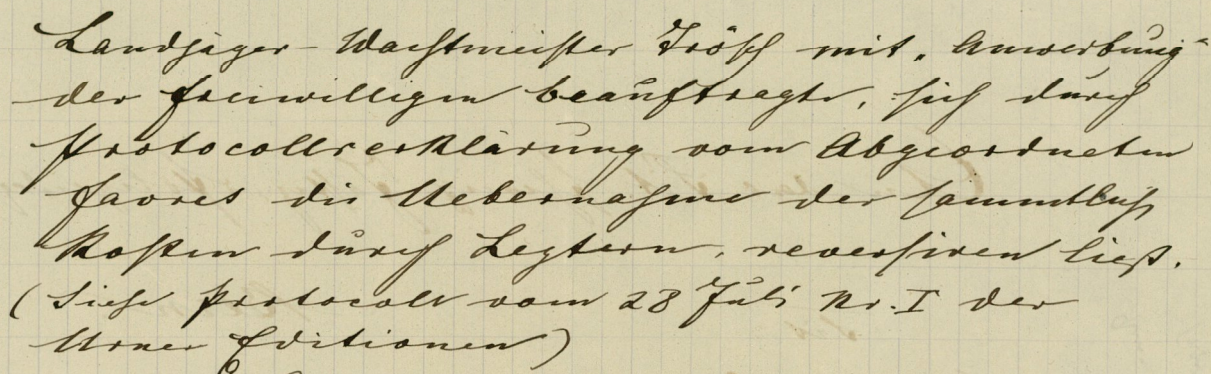 Landjäger-Wachtmeister Trösch mit "Anwerbung"
der freiwilligen beauftragte, sich durch
Protocollserklärung vom Abgeordneten
Favres die Uebernahme der sammtlich
Kosten durch Letztern, reversiren ließ.
(Siehe Protocoll vom 28 Juli Nr. I der
Urner Editionen)